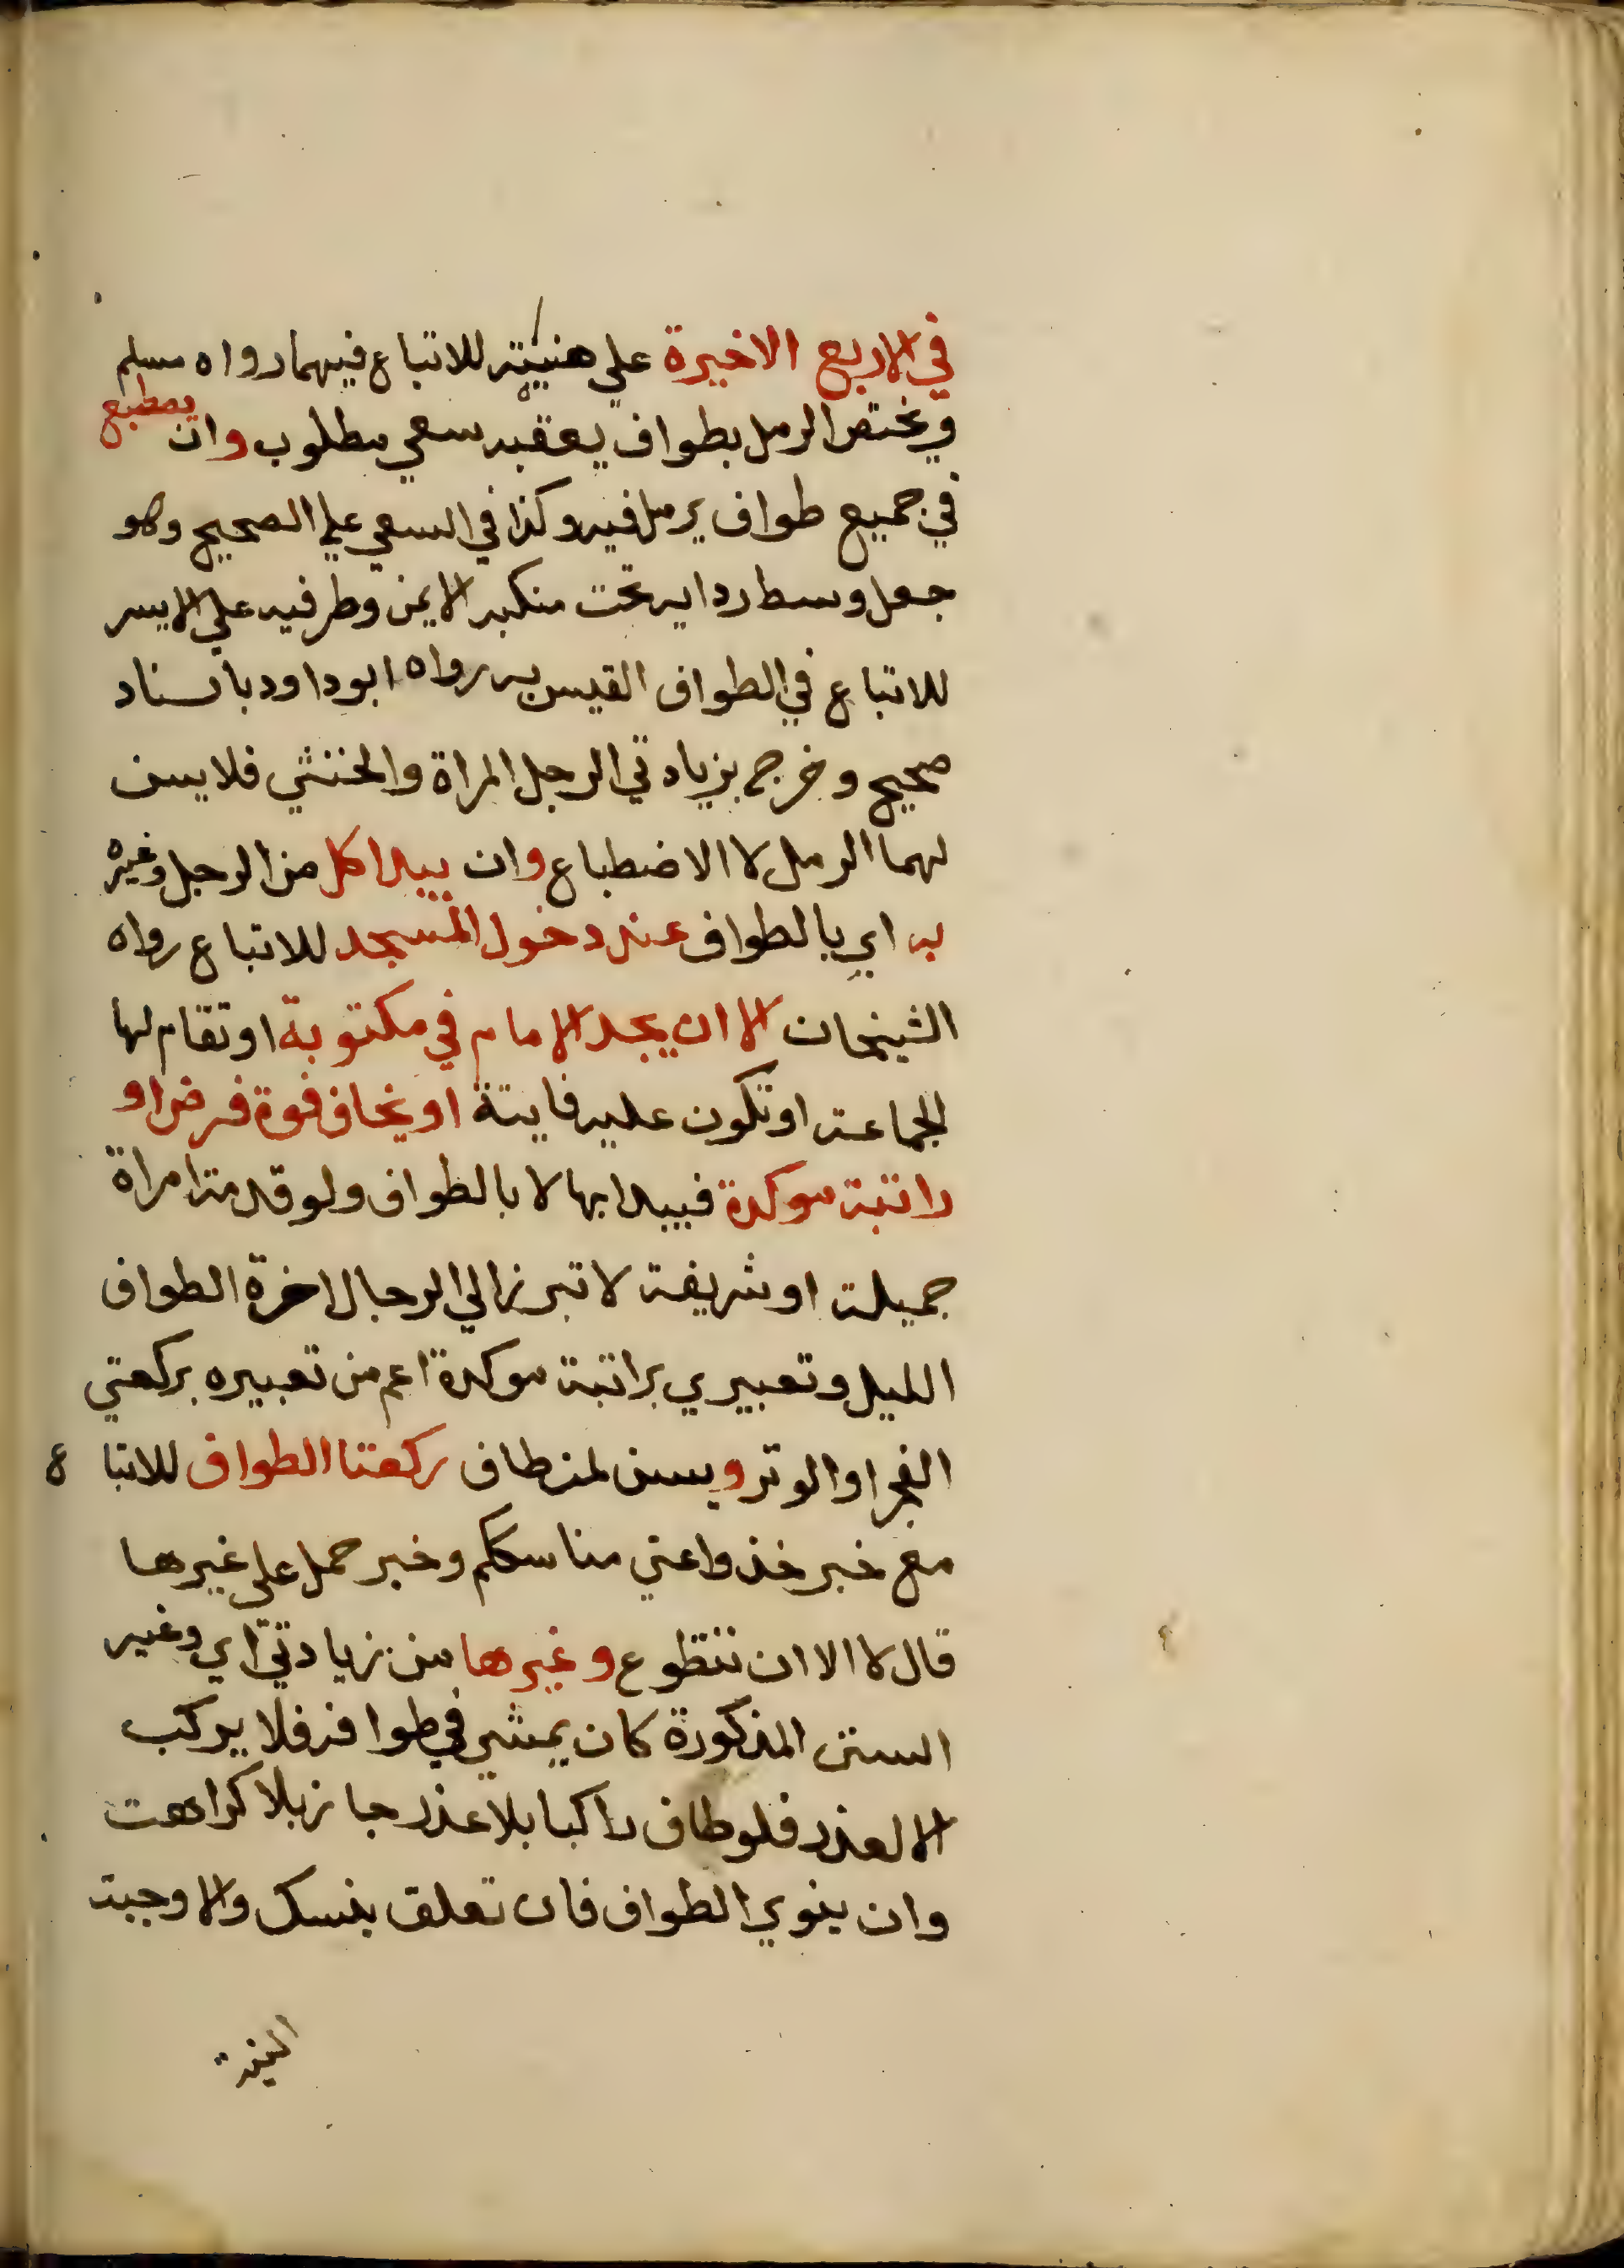 في الاربع الاخيرة علي هنيته للاتباع فيهما رواه مسلم
ويختص الرمل بطواف يعقبه سعي مطلوب وان يصطبع
في جميع طواف يرمل فيه وكذا في السعي علي الصحيح وهو
جعل وسط ردايه تحت منكبه الايمن وطرفيه علي الايسر
للاتباع في الطواف رواه ابوداود باسناد
صحيح وخرج بزيادتي الرجل المراة والخنثي فلا يسن
لهما الرمل لا الاضطباع وان يبدا كل من الرجل وغيره
به اي بالطواف عند دخول المسجد للاتباع رواه
الشيخان الا ان يجد الامام في مكتوبة او تقام لها
الجماعة او تكون عليه فايتة او يخاف فوة فرض او
راتبة موكدة فيبدا بها لا بالطواف ولو قدمت امراة
جميلة او شريفة لا تبرز الي الرجال اخرة الطواف
الليل وتعبيري براتبة موكدة اعم من تعبيره بركعتي
الفجر او الوتر ويسن لمن طاف ركعتا الطواف للاتباع
مع خبر خذوا عني مناسككم وخبر حمل علي غيرها
قال لا الا ان تتطوع وغيرها من زيادتي اي وغير
السنن المذكورة كان يمشي في طوافه فلا يركب
الا لعذر فلو طاف راكبا بلا عذر جاز بلا كراهت
وان ينوي الطواف فان تعلق بنسك والا وجبت
النية